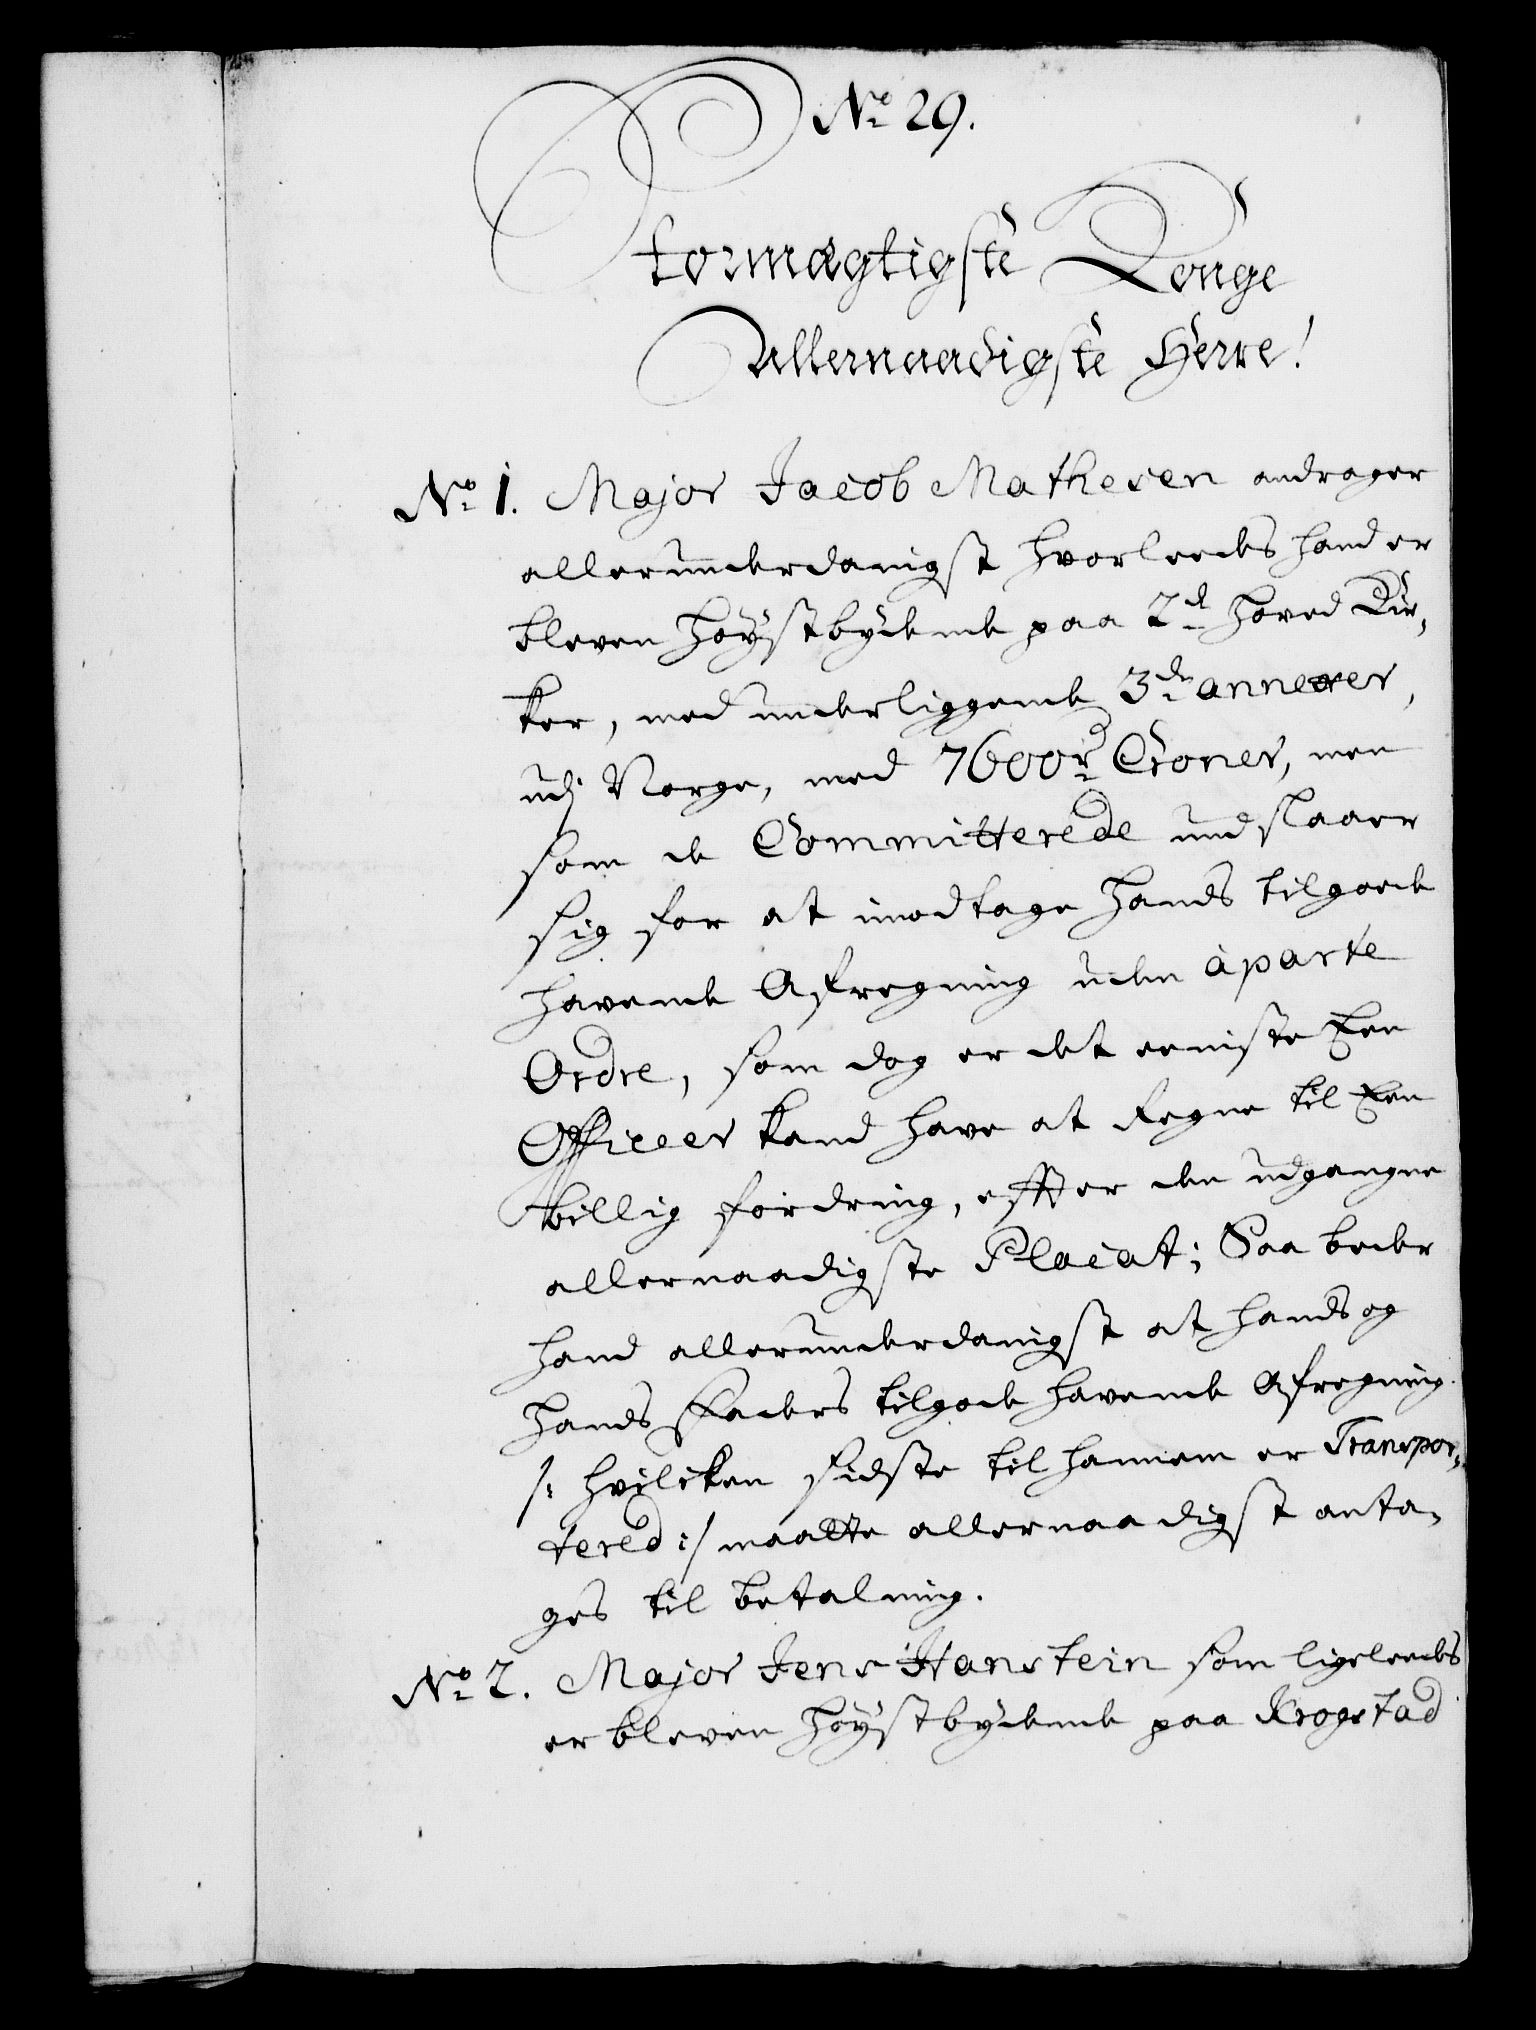 No 29.
Stormægtigste Konge
Allernaadigste Herre!
No 1. Major Jacob Mathesen andrager
allerunderdanigst hvorleedes hand er
bleven høÿstbÿdende paa 2de Hoved Kir-
ker, med underliggende 3de annexer,
udj Norge, med 7600rd Croner, men
som de Committerede undslaaer
sig for at imodtage hands tilgode
havende Afregning uden àparte
Ordre, som dog er det eeniste Een
Officeer kand have at Regne til Een
billig fordring, effter den udgangne
allernaadigste Placat; Saa beder
hand allerunderdanigst at hands og
hands Faders tilgode havende Afregning
/: hvilcken sidste til hannem er Transpor-
tered :/ maatte allernaadigst anta-
ges til betalning.
No 2. Major Jens Hanstein som ligeleedes
er bleven høÿstbydende paa Krogstad